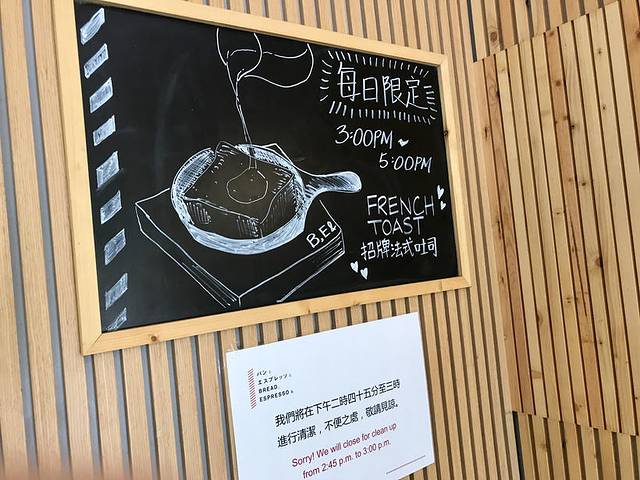 每日限定
3:00PM
5:00PM
FRENCH
TOAST
招牌法式吐司
B,E&
パンと
エスプレッソと
BREAD,
ESPRESSO &
我們將在下午二時四十五分至三時
進行清潔，不便之處，敬請見諒。
Sorry! We will close for clean up
from 2:45 p.m. to 3:00 p.m.